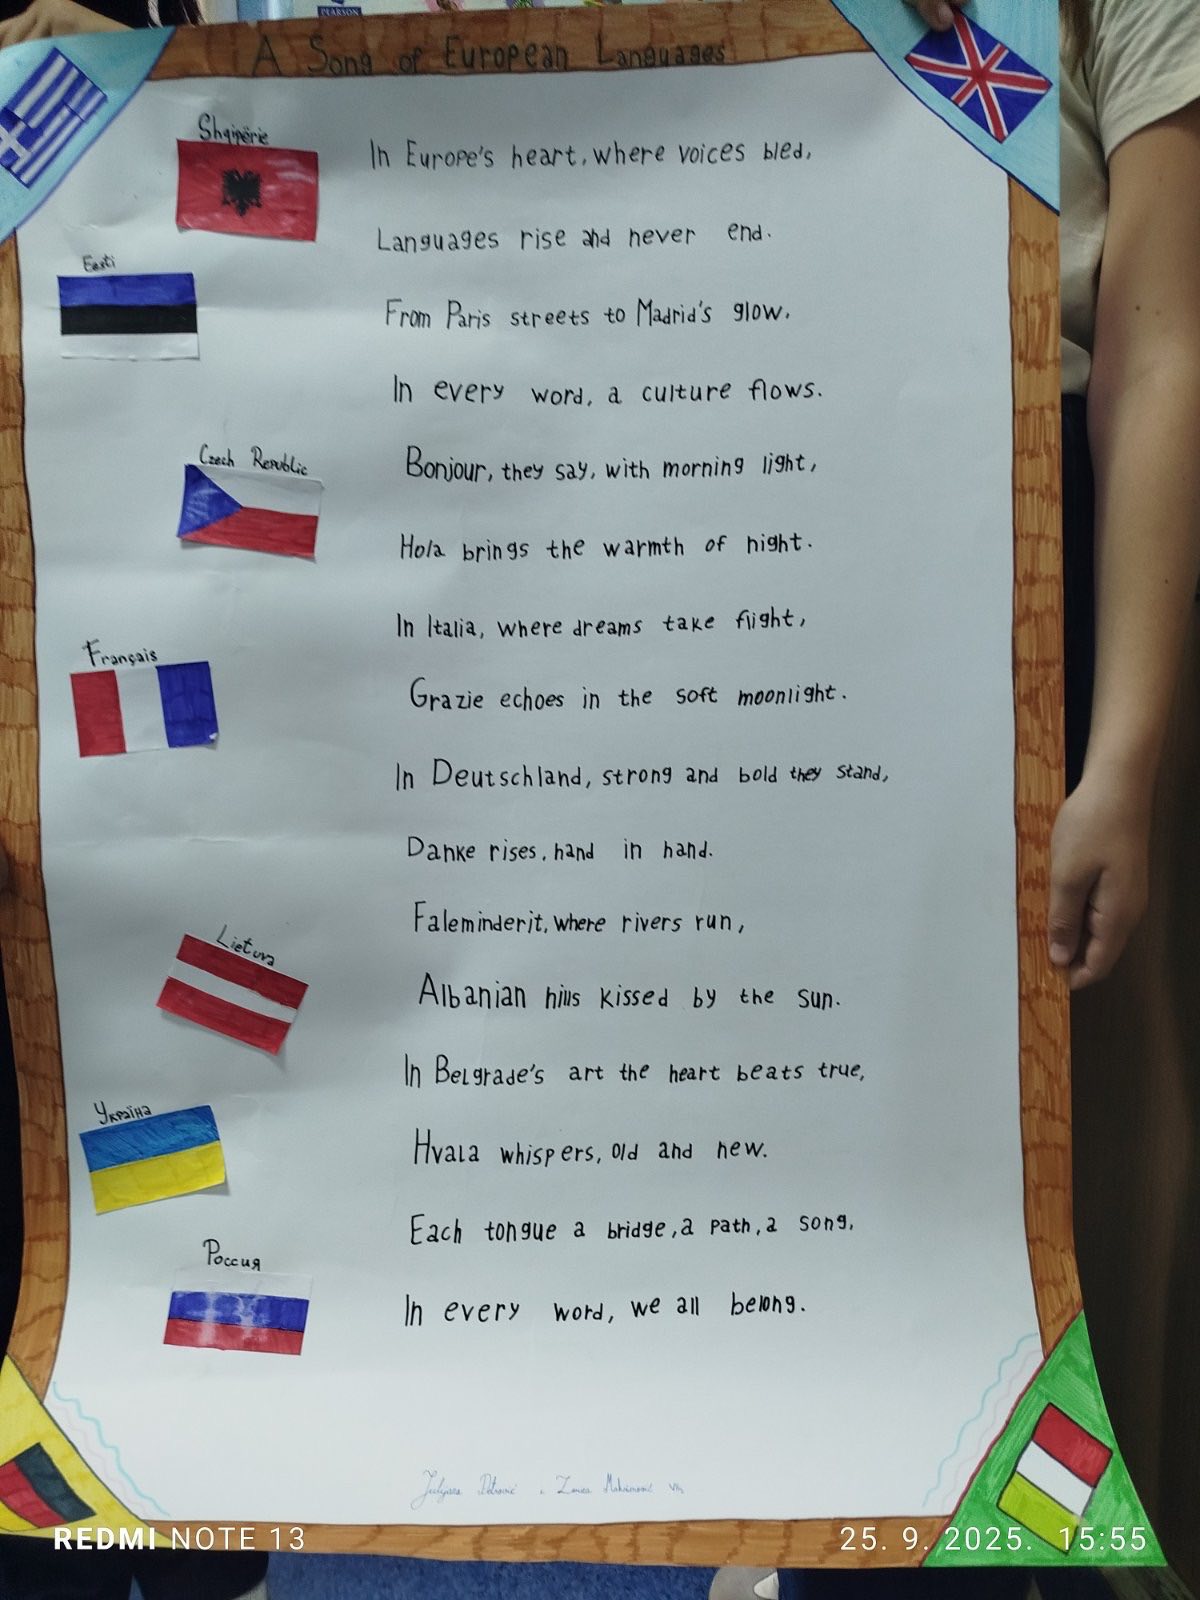 PEARSON
A Song of European Languages
Shqipërie
In Europe's heart, where voices bled,
Languages rise and never end.
Eesti
From Paris streets to Madrid's glow,
In every word, a culture flows.
Czech Republic
Bonjour, they say, with morning light,
Hola brings the warmth of night.
In Italia, where dreams take flight,
Français
Grazie echoes in the soft moonlight.
In Deutschland, strong and bold they stand,
Danke rises, hand in hand.
Faleminderit, where rivers run,
Lietuva
Albanian hills kissed by the sun.
In Belgrade's art the heart beats true,
Україна
Hvala whispers, old and new.
Each tongue a bridge, a path, a song,
Россия
In every word, we all belong.
REDMI NOTE 13
25. 9. 2025. 15:55